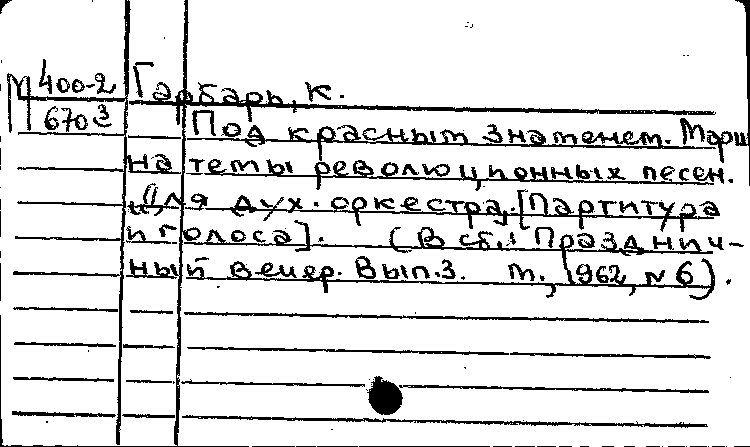 М 400-2
670 3
Гарбарь, К.
Под красным знаменем. Марш
на темы революционных песен.
Для дух. оркестра. [Партитура
и голоса]. (В сб.: Празднич-
ный вечер. Вып. 3. М., 1962, № 6).